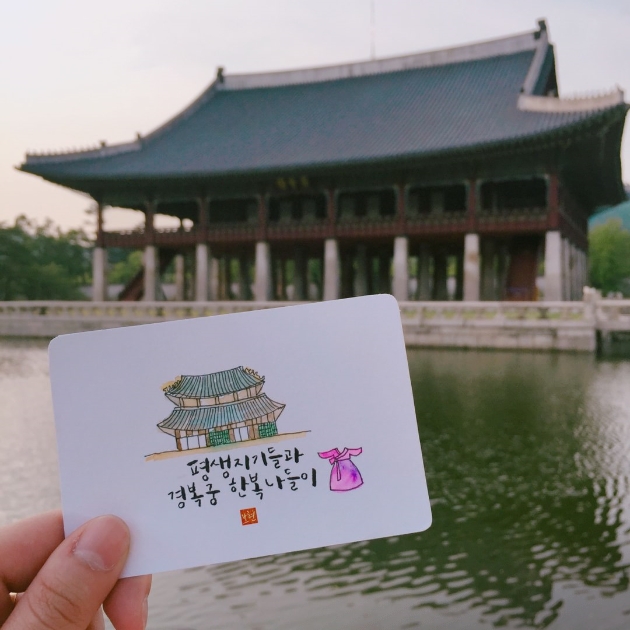 평생지기들과
경복궁 한복나들이